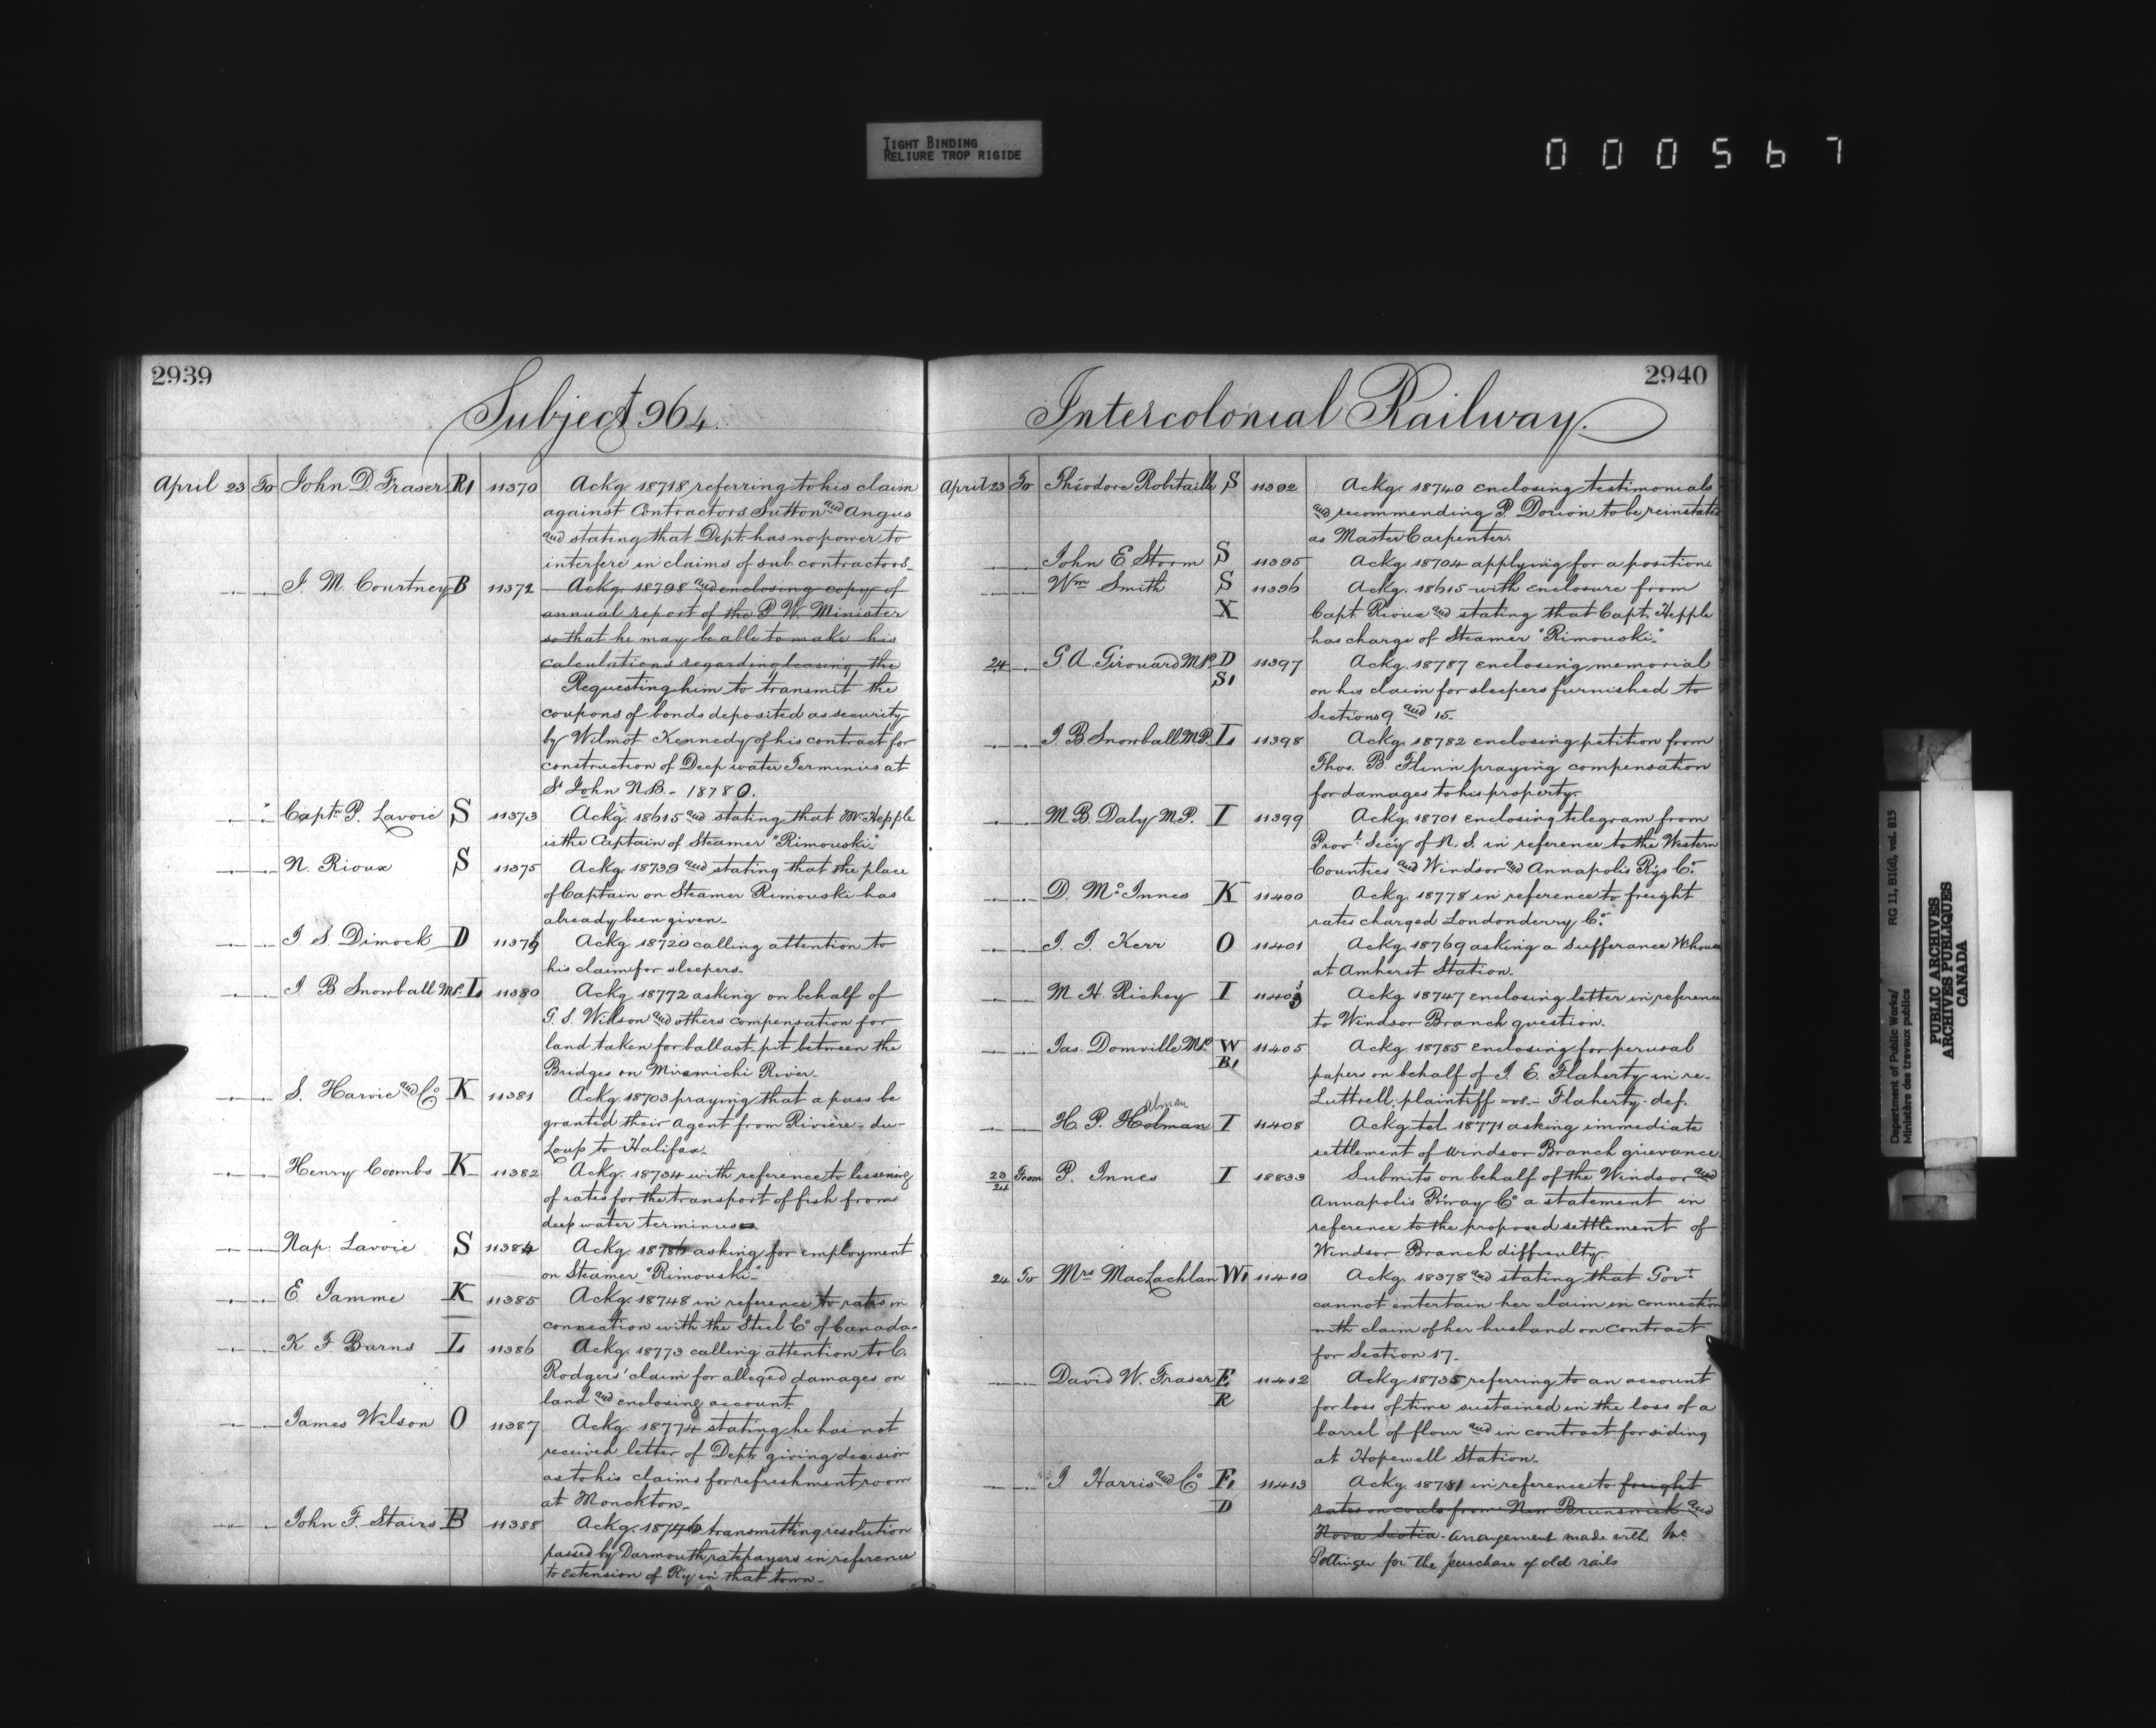 TIGHT BINDING
RELIURE TROP RIGIDE
000567
2939
Subject 964.
April 23 To John D. Fraser R1 11370 Ackg. 18718 referring to his claim
against Contractors Sutton and Angus
and stating that Dept. has no power to
interfere in claims of sub contractors.
J. M. Courtney B 11372 Ackg. 18798 and enclosing copy of
annual report of the P. W. Minister
so that he may be able to make his
calculations regarding leasing the
Requesting him to transmit the
coupons of bonds deposited as security
by Wilmot Kennedy of his contract for
construction of Deep water Terminus at
St John N.B. - 18780.
Capt. P. Lavoie S 11373 Ackg. 18615 and stating that Mr. Hepple
is the Captain of Steamer "Rimouski."
N. Rioux S 11375 Ackg. 18739 and stating that the place
of Captain on Steamer Rimouski has
already been given.
J. S. Dimock D 11379 Ackg. 18720 calling attention to
his claim for sleepers.
J. B Snowball M.P. L 11380 Ackg. 18772 asking on behalf of
G. S. Willson and others compensation for
land taken for ballast-pit between the
Bridges on Miramichi River.
S. Harvie and Co K 11381 Ackg. 18703 praying that a pass be
granted their agent from Rivière-du-
Loup to Halifax.
Henry Coombs K 11382 Ackg. 18734 with reference to lessening
of rates for the transport of fish from
deep water terminus
Nap. Lavoie S 11384 Ackg. 18786 asking for employment
on Steamer "Rimouski."
E. Jamme K 11385 Ackg. 18748 in reference to rates in
connection with the Steel Co of Canada.
K. F. Burns L 11386 Ackg. 18773 calling attention to C.
Rodgers' claim for alleged damages on
land and enclosing account.
James Wilson O 11387 Ackg. 18774 stating he has not
received letter of Dept. giving decision
as to his claims for refreshment room
at Monckton.
John F. Stairs B 11388 Ackg. 18746 transmitting resolution
passed by Darmouth ratepayers in reference
to extension of Ry in that town.
2940
Intercolonial Railway.
April 23 To Théodore Robitaille S 11392 Ackg. 18740 enclosing testimonials
and recommending P. Dorion to be reinstated
as Master Carpenter.
John E Storm S 11395 Ackg. 18704 applying for a position
Wm Smith S 11396 Ackg. 18615 with enclosure from
X Capt. Rioux and stating that Capt. Hepple
has charge of Steamer "Rimouski."
24 G. A. Girouard M.P. D 11397 Ackg. 18787 enclosing memorial
S1 on his claim for sleepers furnished to
Sections 9 and 15.
J. B Snowball M.P. L 11398 Ackg. 18782 enclosing petition from
Thos. B. Flinn praying compensation
for damages to his property.
M. B. Daly M.P. I 11399 Ackg. 18701 enclosing telegram from
Provl. Secy of N. S. in reference to the Western
Counties and Windsor and Annapolis Rys Co.
D. McInnes K 11400 Ackg. 18778 in reference to freight
rates charged Londonderry Co.
J. J. Kerr O 11401 Ackg. 18769 asking a Sufferance W.house
at Amherst Station.
M. H. Richey I 11403 Ackg. 18747 enclosing letter in reference
to Windsor Branch question.
Jas. Domville M.P. W 11405 Ackg. 18785 enclosing for perusal
B1 papers on behalf of J. E. Flaherty in re-
Luttrell, plaintiff vs. - Flaherty - def.
Alman
H. P. Holman I 11408 Ackg. tel. 18771 asking immediate
settlement of Windsor Branch grievance.
23/24 From P. Innes I 18833 Submits on behalf of the Windsor and
Annapolis R'way Co a statement in
reference to the proposed settlement of
Windsor Branch difficulty.
24 To Mrs MacLachlan W1 11410 Ackg. 18378 and stating that Govt.
cannot entertain her claim in connection
with claim of her husband on contract
for Section 17.
David W. Fraser E 11412 Ackg. 18735 referring to an account
R for loss of time sustained in the loss of a
barrel of flour and in contract for siding
at Hopewell Station.
J Harris and Co F1 11413 Ackg. 18781 in reference to freight
D rates on coals from New Brunswick and
Nova Scotia. Arrangement made with Mr
Pottinger for the purchase of old rails
Department of Public Works/ RG 11, B1(d), vol. 815
Ministère des travaux publics
PUBLIC ARCHIVES
ARCHIVES PUBLIQUES
CANADA